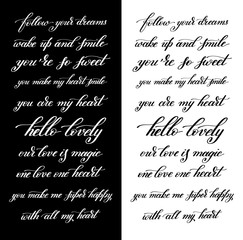 follow your dreams
wake up and smile
you're so sweet
you make my heart smile
you are my heart
hello lovely
our love is magic
one love one heart
you make me super happy
with all my heart
follow your dreams
wake up and smile
you're so sweet
you make my heart smile
you are my heart
hello lovely
our love is magic
one love one heart
you make me super happy
with all my heart